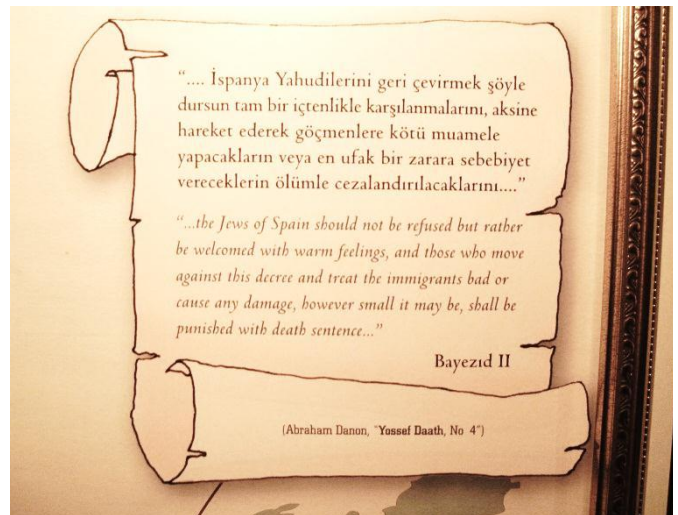 “.... İspanya Yahudilerini geri çevirmek şöyle
dursun tam bir içtenlikle karşılanmalarını, aksine
hareket ederek göçmenlere kötü muamele
yapacakların veya en ufak bir zarara sebebiyet
vereceklerin ölümle cezalandırılacaklarını....”
“...the Jews of Spain should not be refused but rather
be welcomed with warm feelings, and those who move
against this decree and treat the immigrants bad or
cause any damage, however small it may be, shall be
punished with death sentence...”
Bayezıd II
(Abraham Danon, “Yossef Daath, No 4”)